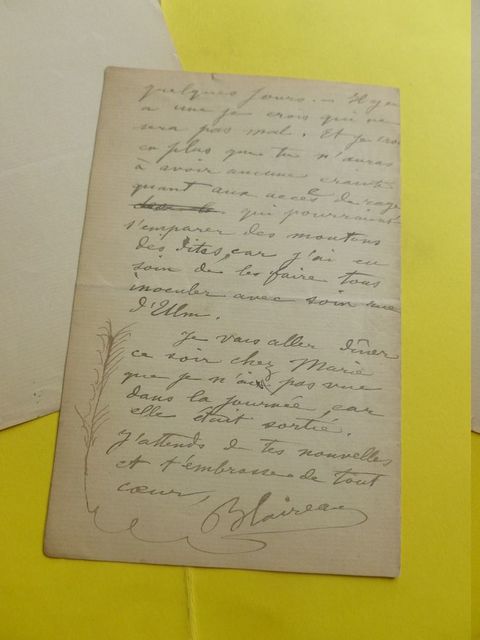 quelques jours. — Il y en
a une je crois qui ne
sera pas mal. Et je crois
en plus que tu n'auras
à avoir aucune crainte
quant aux accès de rage
qui pourraient
s'emparer des moutons
des dites, car j'ai eu
soin de les faire tous
inoculer avec soin rue
d'Ulm.
Je vais aller dîner
ce soir chez Marie
que je n'ai pas vue
dans la journée, car
elle était sortie.
J'attends de tes nouvelles
et t'embrasse de tout
cœur,
Blaireau